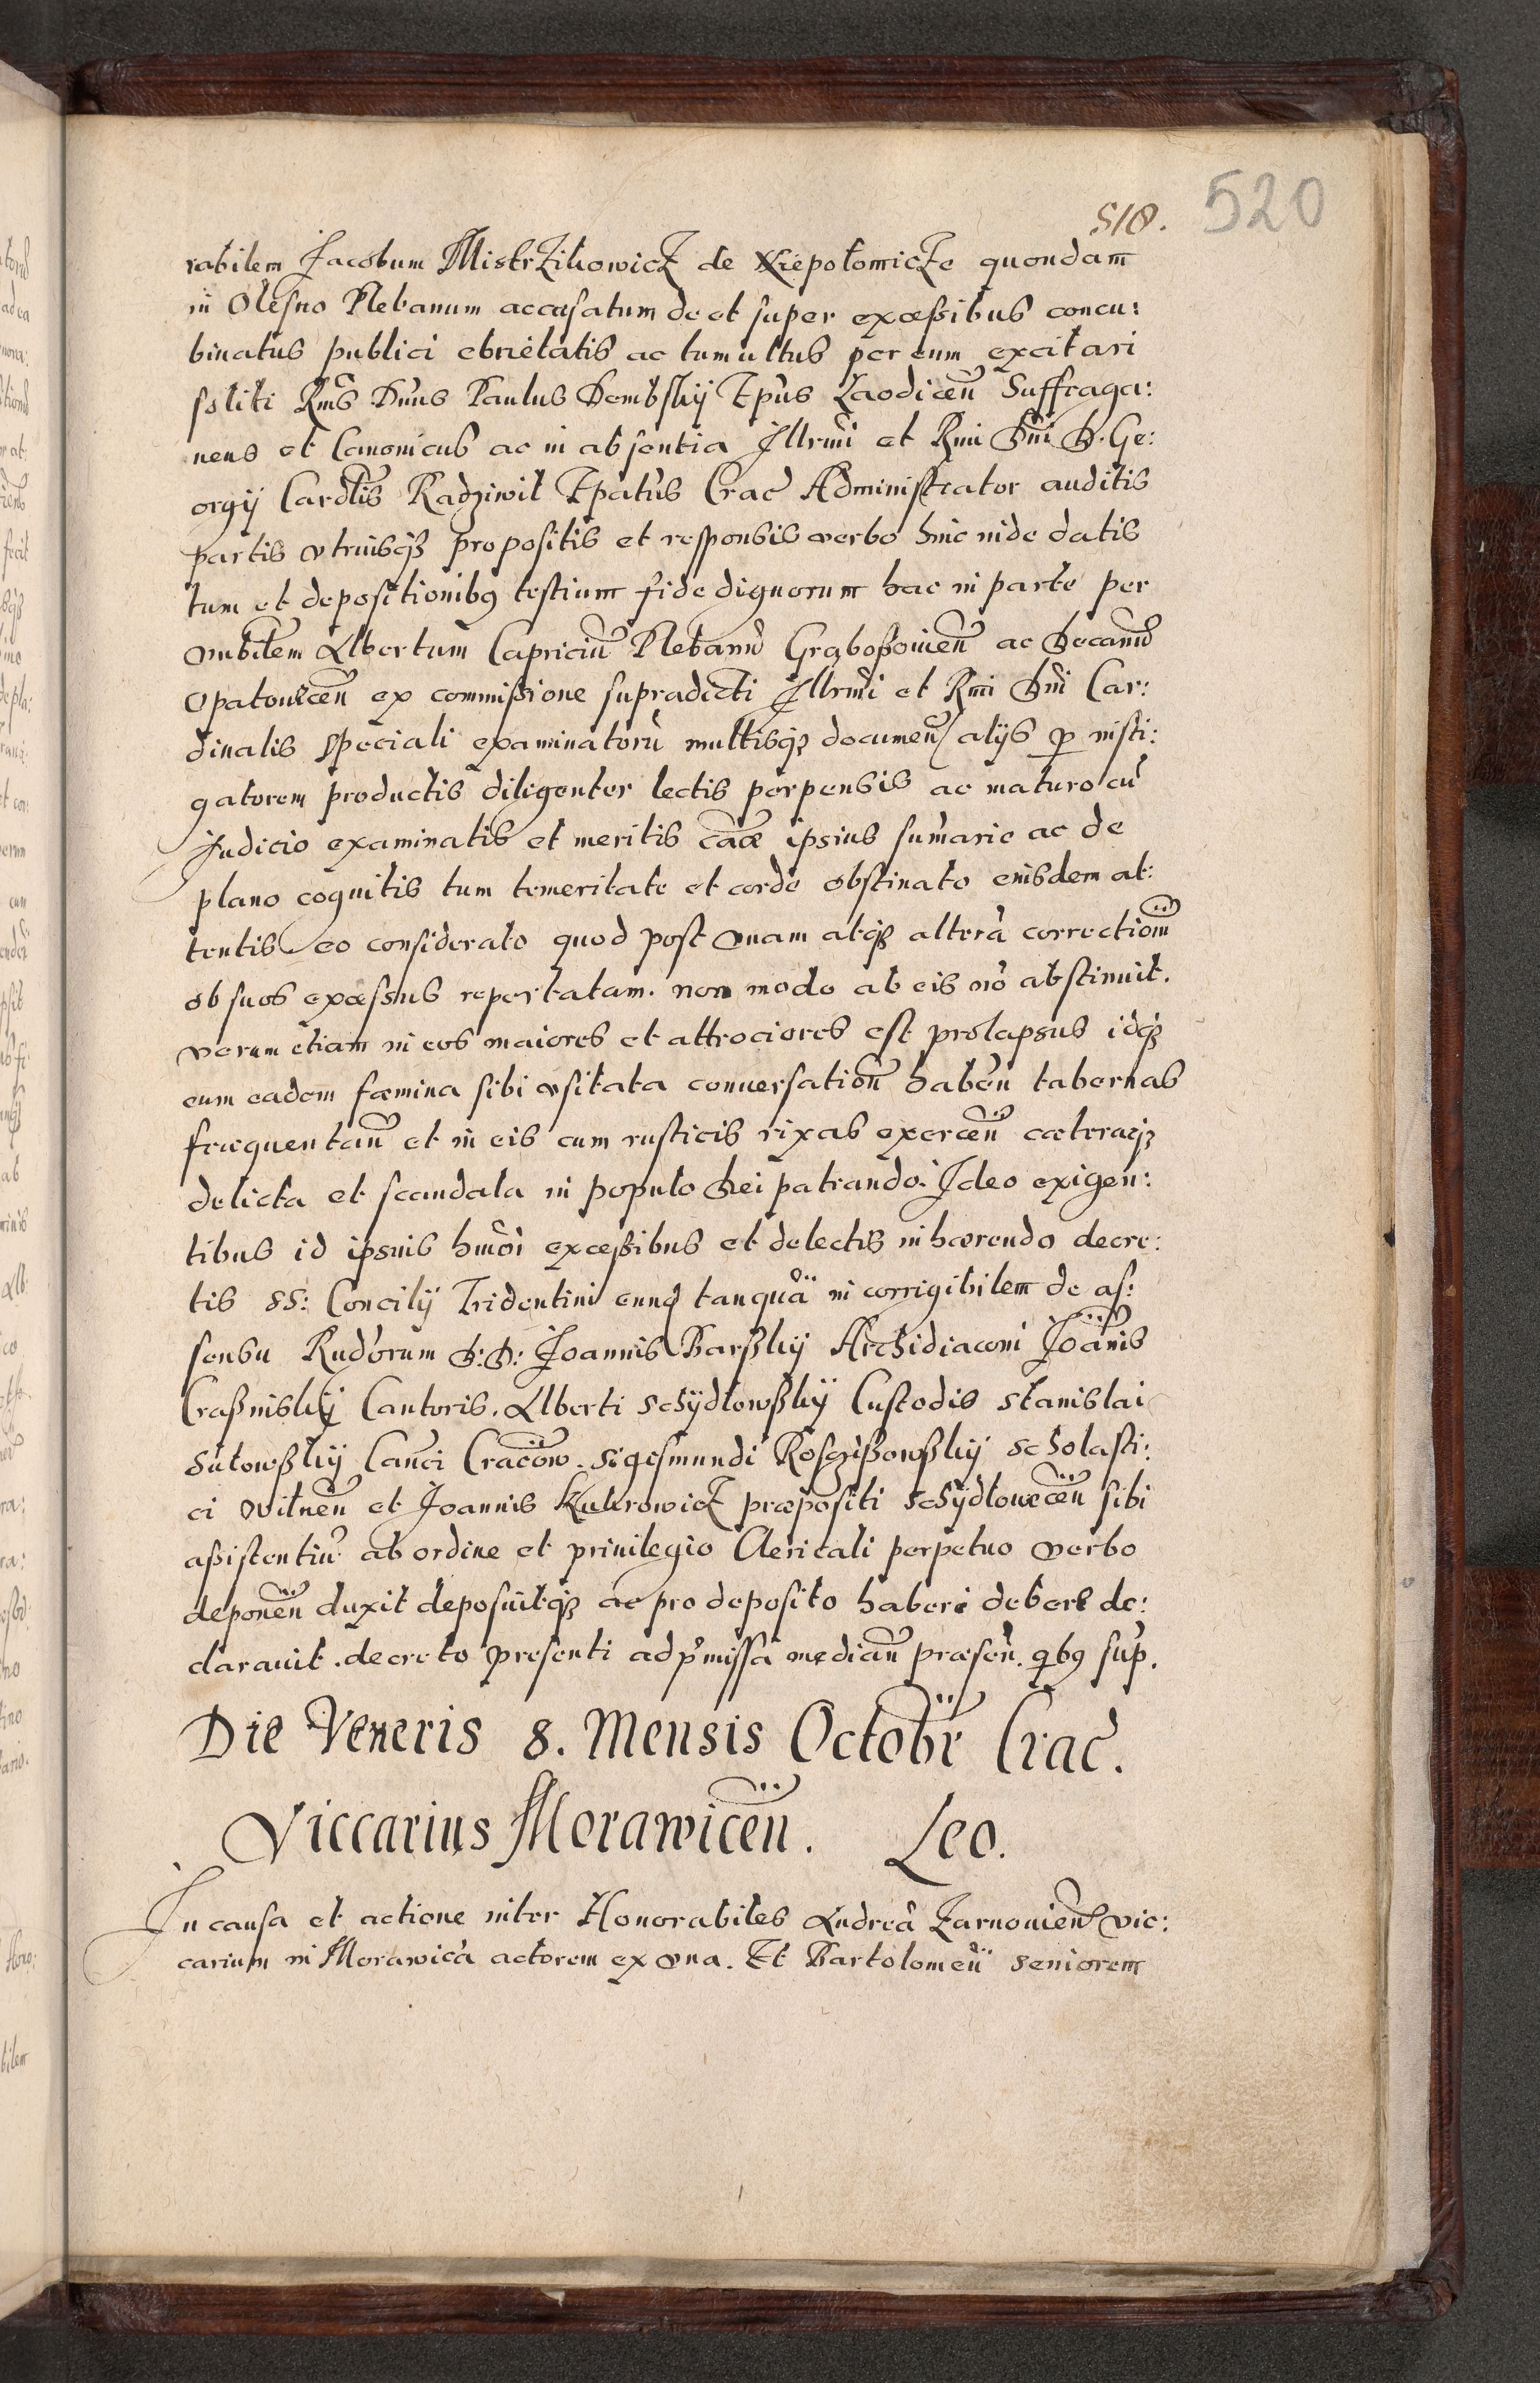 518. 520
rabilem Jacobum Mistrzikowicz de Niepolomicze quondam
in Olesno Plebanum accusatum de et super excessibus concu:
binatus publici ebrietatis ac tumultus per eum excitari
soliti Rms Dnus Paulus Dembskij Epus Laodicen Suffraga:
neus et Canonicus ac in absentia Illrmi et Rmi Dni D. Ge:
orgij Cardlis Radziwil Epatus Crac Administrator auditis
partis vtriusq3 propositis et responsis verbo hinc inde datis
tum et depositionib9 testium fide dignorum hac in parte per
Albertum Capriciu Plebanu Graboßouien ac Decanu
Opatouicen ex commissione supradicti Illrmi et Rmi Dni Car:
dinalis speciali examinatoru multisq3 documen alijs p insti:
gatorem productis diligenter lectis perpensis ac maturo cu
Judicio examinatis et meritis cace ipsius sumarie ac de
plano cognitis tum temeritate et corde obstinato eiusdem at:
tentis eo considerato quod post vnam atq3 altera correctiom
ob suos excessus reportatam. non modo ab eis no abstinuit.
verum etiam in eos maiores et attrociores est prolapsus idq3
cum eadem fœmina sibi vsitata conuersation haben tabernas
fræquentan et in eis cum rusticis rixas exercen cæteraq3
delicta et scandala in populo Dei patrando. Ideo exigen:
tibus id ipsius hmoi excessibus et delectis inhærendo decre:
tis SS: Concilij Tridentini eund tanqua incorrigibilem de as:
sensu Rndorum D: D: Joannis Barßkij Archidiaconi Joanis
Craßniskij Cantoris. Alberti Schÿdlowßkij Custodis Stanislai
Sulowßkij Canci Cracow. Sigismundi Scholasti:
ci Vilnen et Joannis Kukrowicz præpositi Schÿdlowecen sibi
assistentiu ab ordine et priuilegio Clericali perpetuo verbo
deponen duxit deposuitq3 ac pro deposito haberi debere de:
clarauit. decreto presenti ad pmissa median præsen. qb9 sup.
Die Veneris 8. Mensis Octobr Crac.
Viccarius Morawicen. Leo.
In causa et actione inter Honorabiles Andrea Zarnouien vic:
carium in Morawica actorem ex vna. Et Bartolomeu seniorem